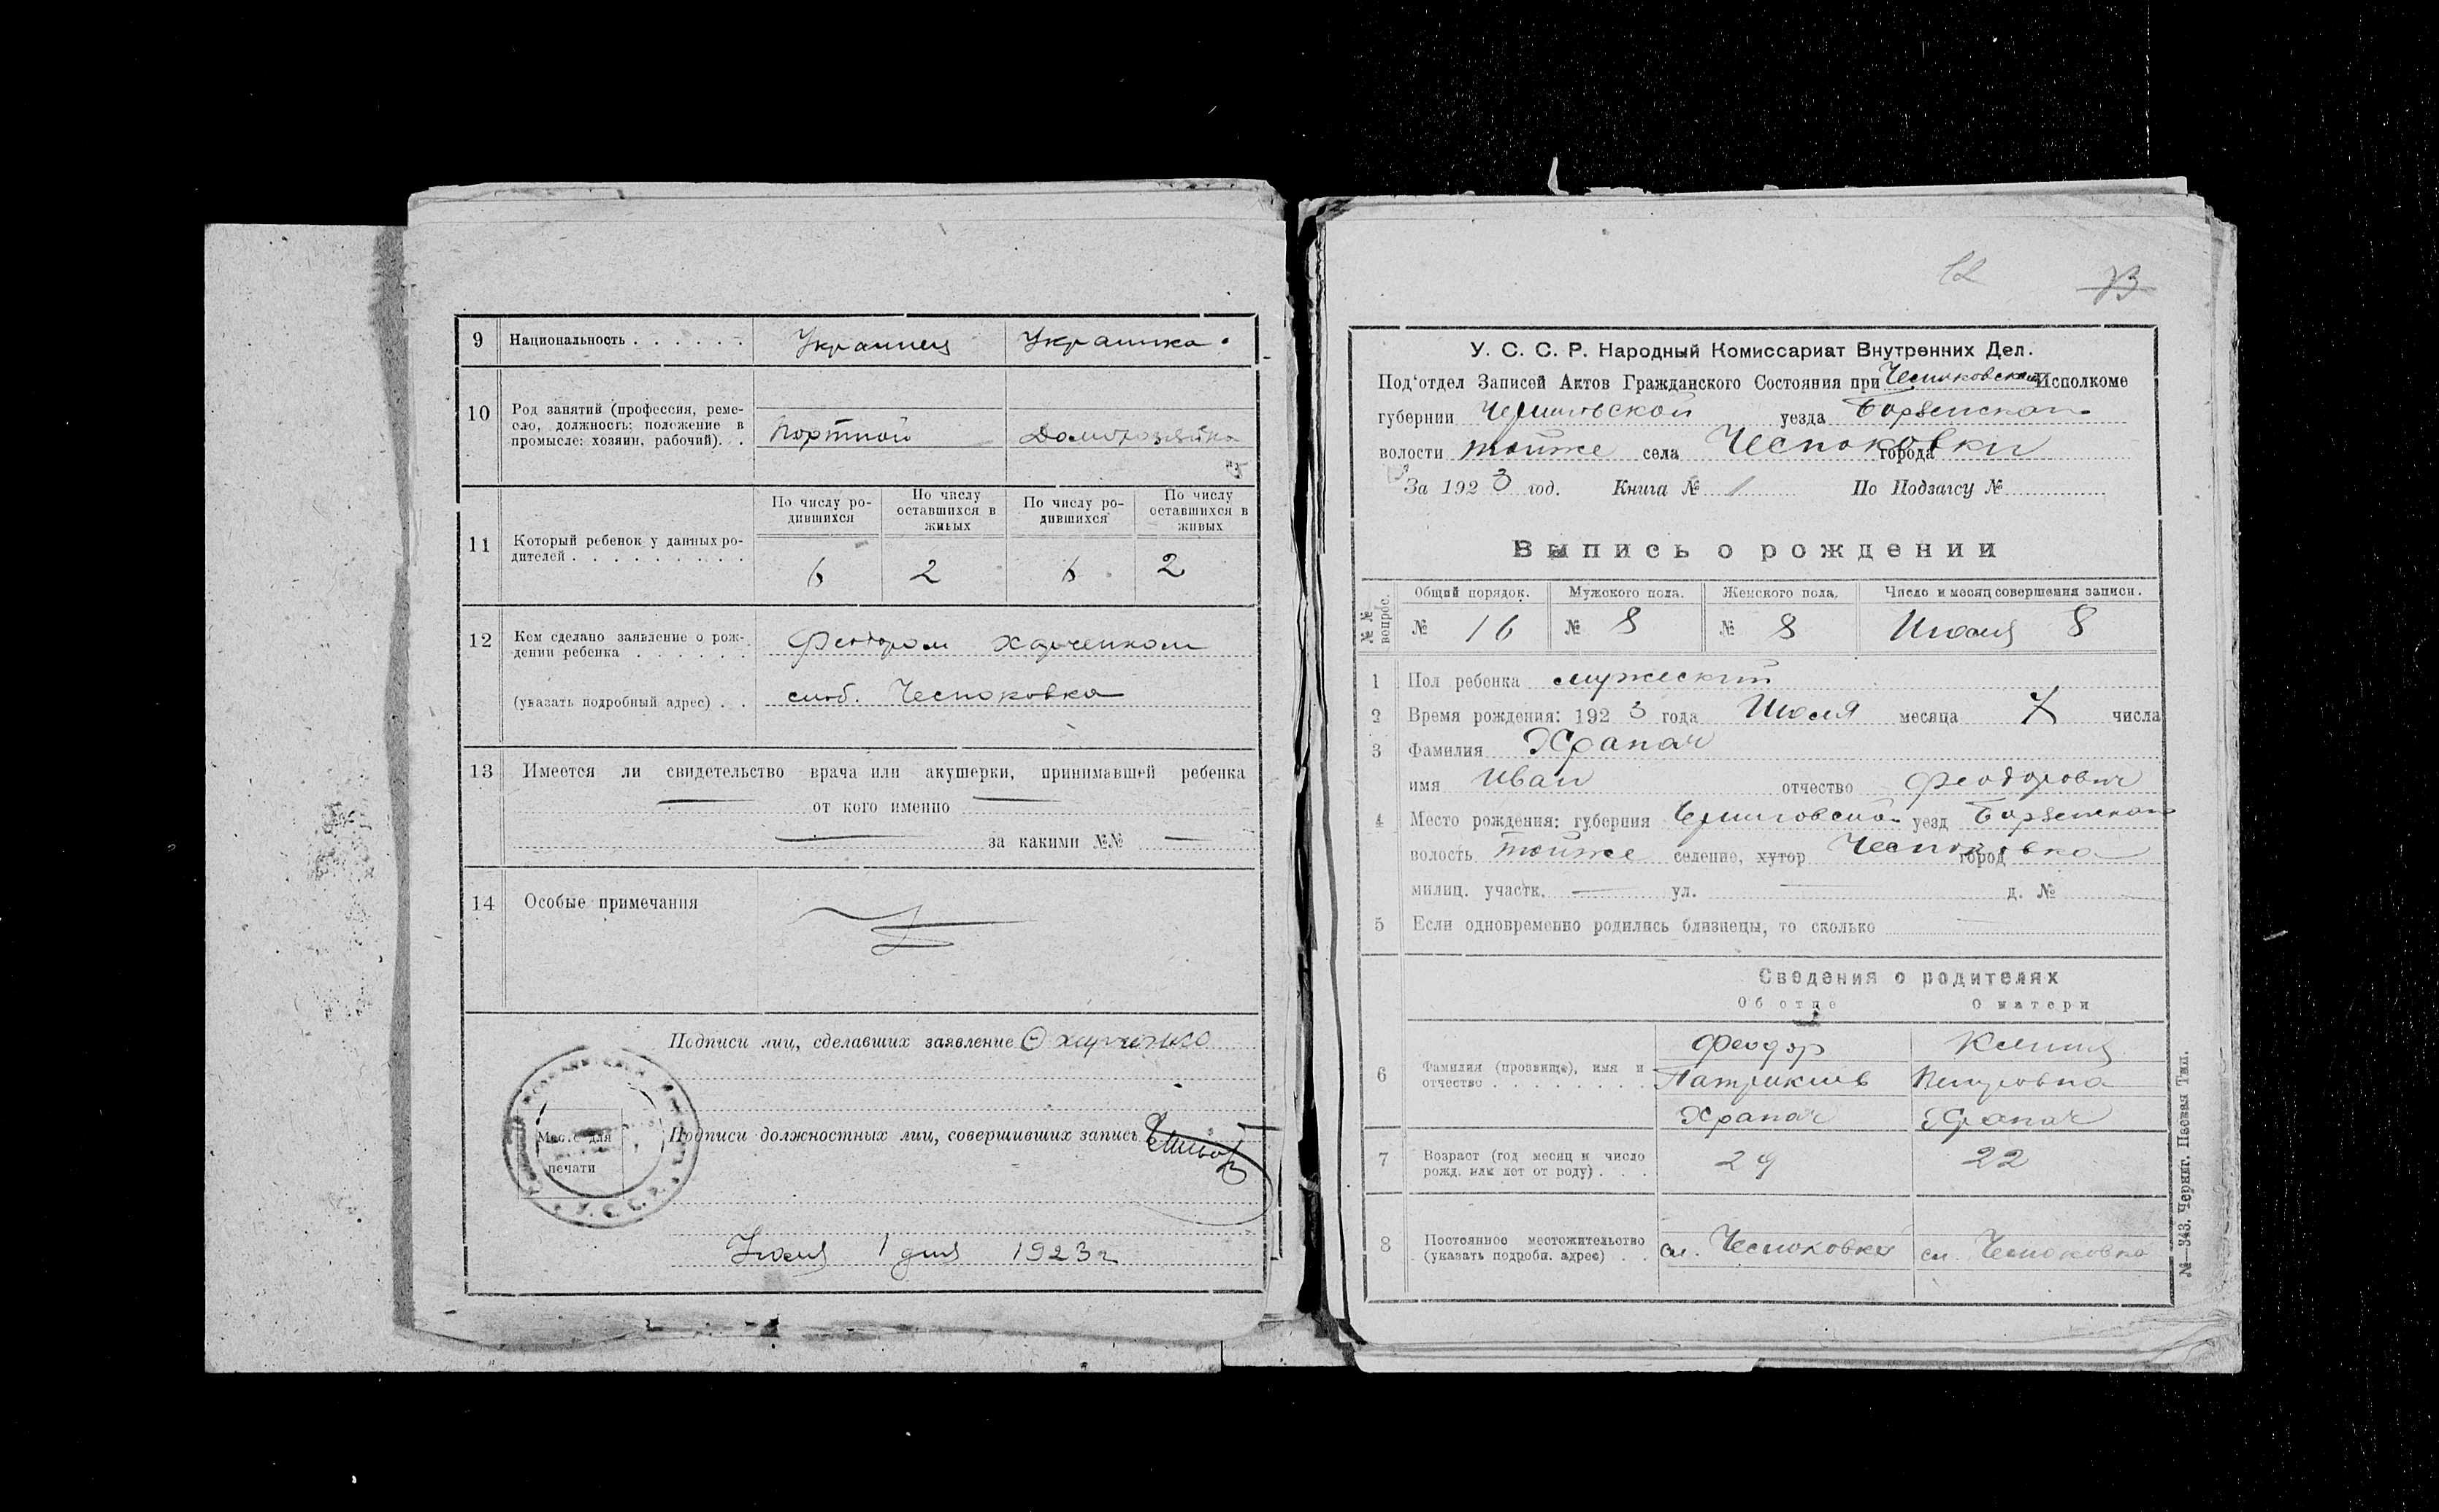 9 Национальность . . . . . . Украинец Украинка.
10 Род занятий (профессия, реме-
сло, должность: положение в
промысле: хозяин, рабочий). . . Портной Домохозяйка
11 Который ребенок у данных ро-
дителей . . . . . . . . .
По числу ро-
дившихся
По числу
оставшихся в
живых
По числу ро-
дившихся
По числу
оставшихся в
живых
6 2 6 2
12 Кем сделано заявление о рож-
дении ребенка . . . . . . Феодором Харченком
(указать подробный адрес) . . слоб. Чесноковка
13 Имеется ли свидетельство врача или акушерки, принимавшей ребенка
от кого именно
за какими №№
14 Особые примечания
Подписи лиц, сделавших заявление Ѳ харченко
Подписи должностных лиц, совершивших запись
Место для
печати
У. С. С. Р.
Июля 1 дня 1923 г
12 73
У. С. С. Р. Народный Комиссариат Внутренних Дел.
Под'отдел Записей Актов Гражданского Состояния при Чесноковском Исполкоме
губернии Черниговской уезда Борзенского
волости тойже села Чесноковки города
За 1923 год. Книга № 1 По Подзагсу №
Выпись о рождении
№№ вопрос. Общий порядок. Мужского пола. Женского пола. Число и месяц совершения записи.
№ 16 № 8 № 8 Июля 8
1 Пол ребенка мужеский
2 Время рождения: 1923 года Июля месяца 7 числа
3 Фамилия Храпач
имя Иван отчество Феодорович
4 Место рождения: губерния Черниговской уезд Борзенском
волость тойже селение, хутор Чесноковка город
милиц. участк. ул. д. №
5 Если одновременно родились близнецы, то сколько
Сведения о родителях
Об отце О матери
6 Фамилия (прозвище), имя и
отчество . . . . . . . .
Феодор Ксения
Патрикиев Петровна
Храпач Храпач
7 Возраст (год месяц и число
рожд. или лет от роду) . . . 29 22
8 Постоянное местожительство
(указать подробн. адрес) . . сл. Чесноковка сл. Чесноковка
№—343. Черниг. Паевая Тип.